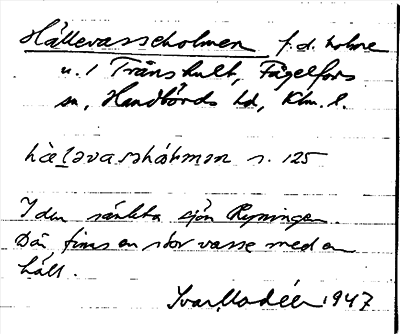 Hållevasseholmen f.d. holme
u. 1 Trånshult, Fågelfors
sn, Handbörds hd, Klm. l.
hàḷəvasəhòḷmən s. 125
I den sänkta sjön Ryningen.
Där finns en stor vasse med en
håll.
Ivar Modéer 1947